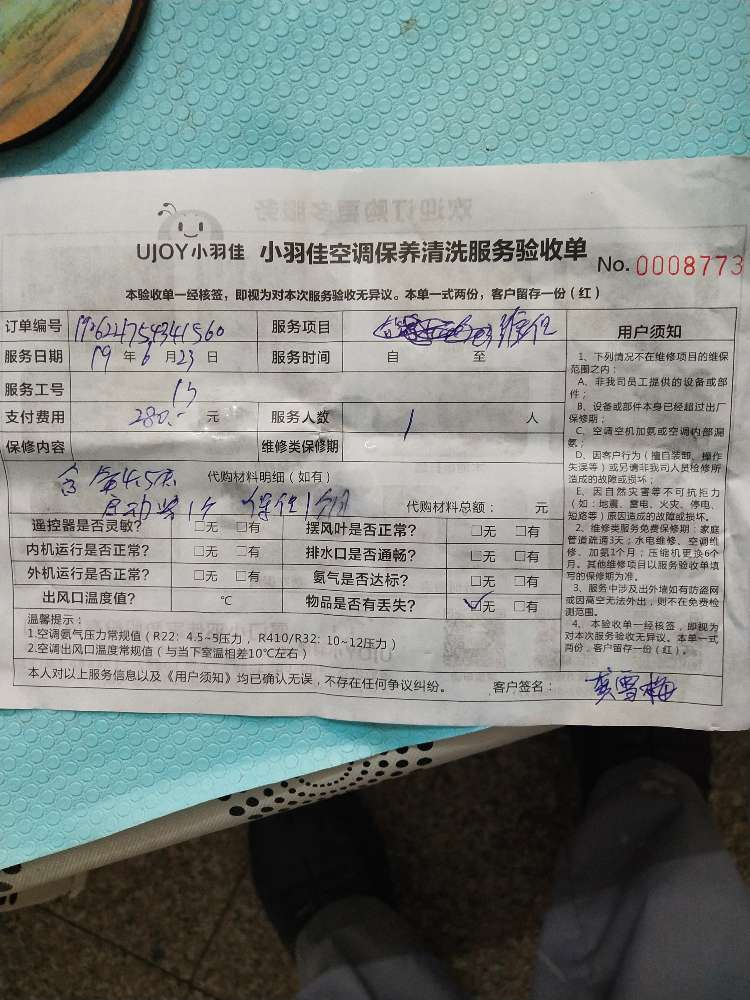 欢迎订购更多服务
UJOY小羽佳 小羽佳空调保养清洗服务验收单 No. 0008773
本验收单一经核签，即视为对本次服务验收无异议。本单一式两份，客户留存一份（红）
订单编号 服务项目 维修
服务日期 19 年 6 月 23 日 服务时间 自 至
服务工号
支付费用 280.- 元 服务人数 1 人
保修内容 维修类保修期
代购材料明细（如有）
代购材料总额： 元
遥控器是否灵敏？ □无 □有 摆风叶是否正常？ □无 □有
内机运行是否正常？ □无 □有 排水口是否通畅？ □无 □有
外机运行是否正常？ □无 □有 氨气是否达标？ □无 □有
出风口温度值？ ℃ 物品是否有丢失？ ☑无 □有
温馨提示：
1.空调氨气压力常规值（R22：4.5~5压力， R410/R32：10~12压力）
2.空调出风口温度常规值（与当下室温相差10℃左右）
本人对以上服务信息以及《用户须知》均已确认无误，不存在任何争议纠纷。 客户签名： 黄雪梅
用户须知
1、下列情况不在维修项目的维保
范围之内：
A、非我司员工提供的设备或部
件；
B、设备或部件本身已经超过出厂
保修期；
C、空调空机加氨或空调内部漏
氨；
D、因客户行为（擅自装卸、操作
失误等）或另请非我司人员检修所
造成的故障或损坏；
E、因自然灾害等不可抗拒力
（如：地震、雷电、火灾、停电、
短路等）原因造成的故障或损坏。
2、维修类服务免费保修期：家庭
管道疏通3天；水电维修、空调维
修、加氨1个月；压缩机更换6个
月。其他维修项目以服务验收单填
写的保修期为准。
3、服务中涉及出外墙如有防盗网
或因高空无法外出，则不在免费检
测范围。
4、本验收单一经核签，即视为
对本次服务验收无异议。本单一式
两份，客户留存一份（红）。